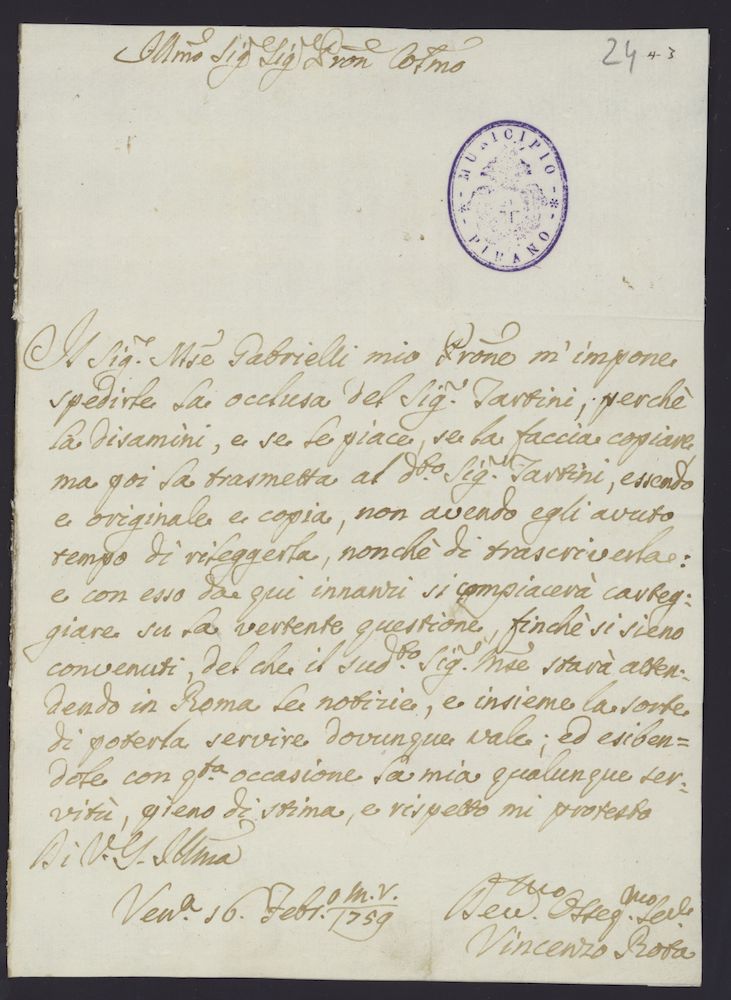 Illmo Sigr Sigr Pron Colmo
24 43
MUNICIPIO
PIRANO
Il Sigr. Mse Gabrielli mio Prone m'impone
spedirle la occlusa del Sigr. Tartini, perchè
la disamini, e se le piace, se la faccia copiare,
ma poi la trasmetta al dto Sigr. Tartini, essendo
e originale e copia, non avendo egli avuto
tempo di rileggerla, nonchè di trascriverla:
e con esso da qui innanzi si compiacerà carteg:
giare su la vertente questione, finchè si sieno
convenuti, del che il sudto Sigr. Mse starà atten:
dendo in Roma le notizie, e insieme la sorte
di poterla servire dovunque vale; ed esiben=
dole con qta occasione la mia qualunque ser:
vitù, pieno di stima, e rispetto mi protesto
Di V. S. Illma
Vena. 16. Febro. M.V. 1759
Devmo. Osseqmo. Sere
Vincenzo Rota